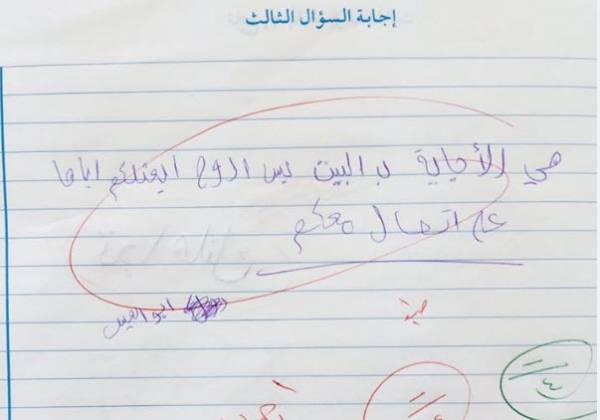 إجابة السؤال الثالث
هي الأجابة ب البيت بس اروح ابعثلكم اياها
على اتصال معكم
ابو العيس
٤